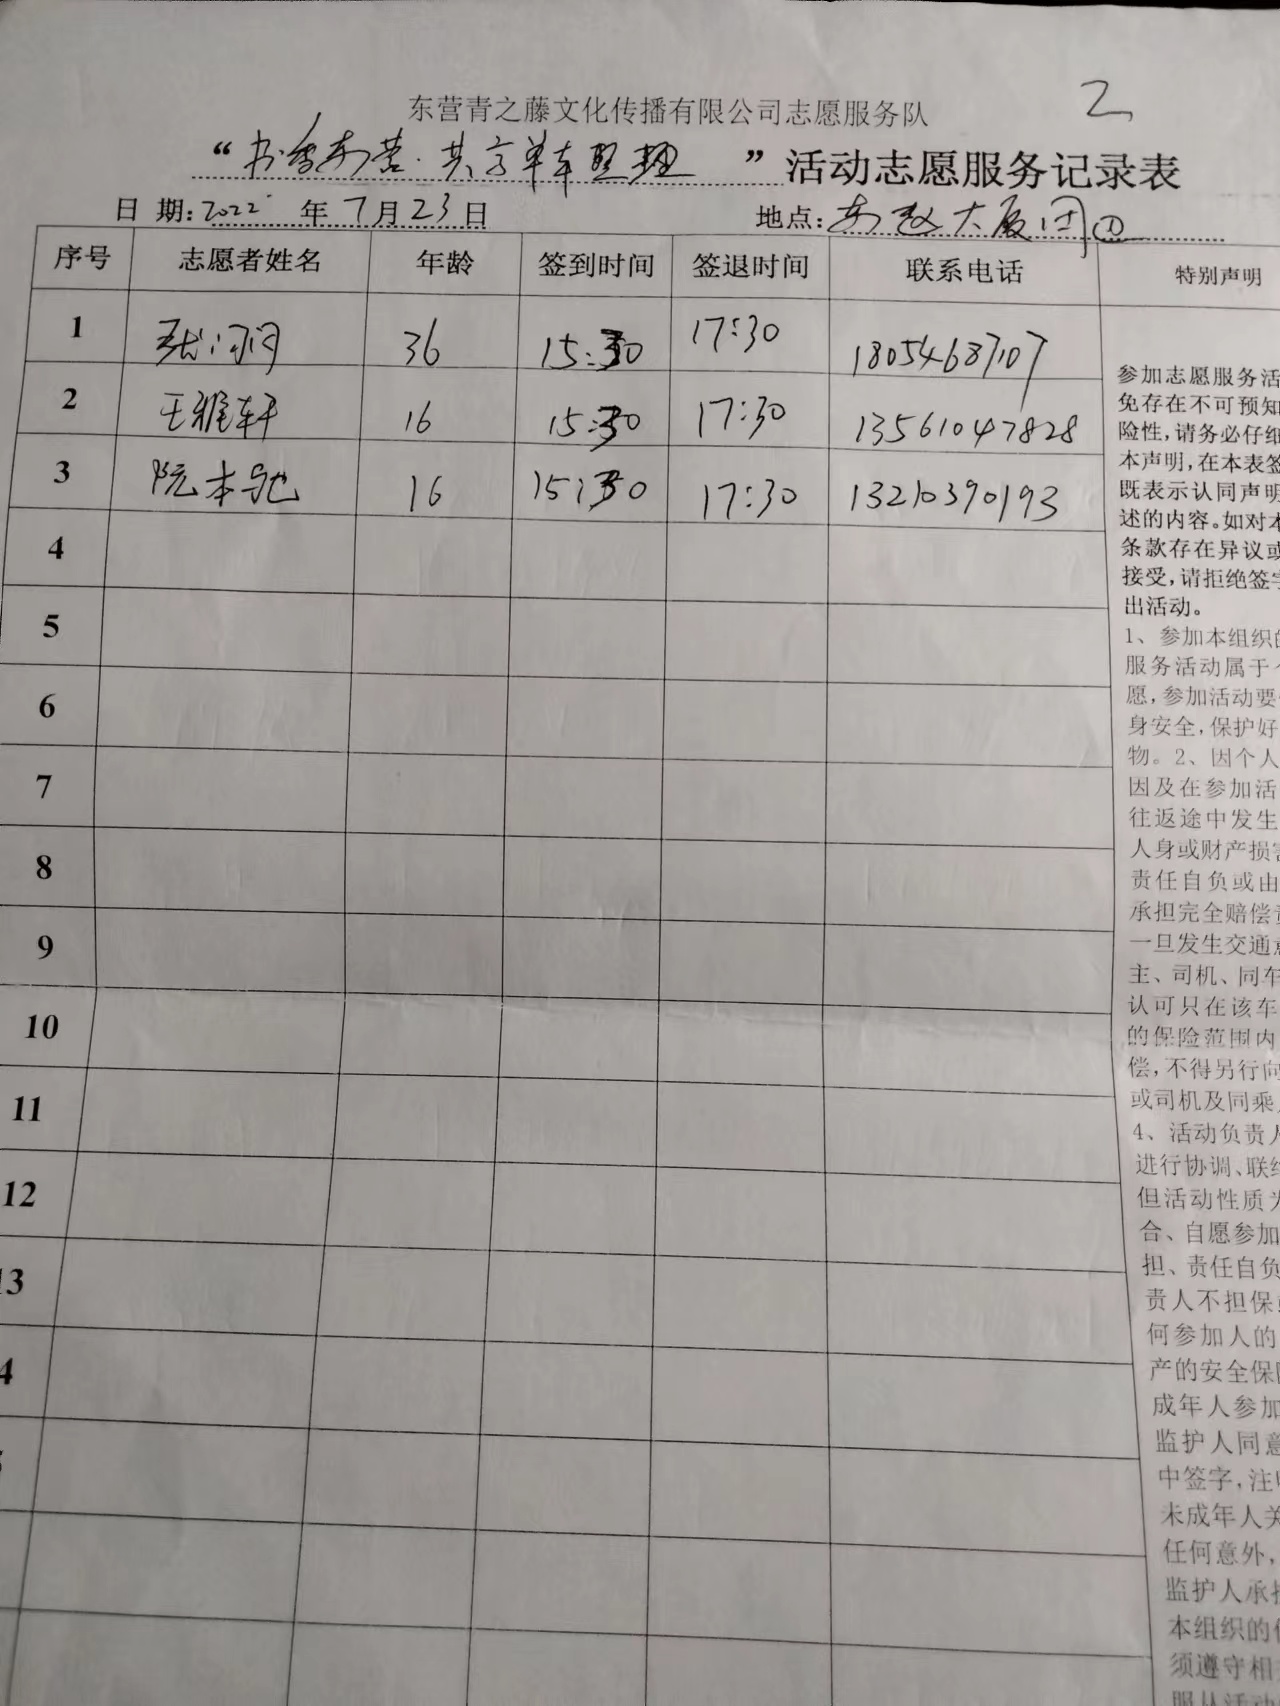 2
东营青之藤文化传播有限公司志愿服务队
“书香东营·共享单车整理”活动志愿服务记录表
日 期:2022年7月23日 地点:东赵大厦周边
序号 志愿者姓名 年龄 签到时间 签退时间 联系电话 特别声明
1 36 15:30 17:30 18054687107
2 王雅轩 16 15:30 17:30 13561047828
3 16 15:30 17:30 13210390193
4
5
6
7
8
9
10
11
12
13
4
5
参加志愿服务活
免存在不可预知
险性,请务必仔细
本声明,在本表签
既表示认同声明
述的内容。如对本
条款存在异议或
接受,请拒绝签字
出活动。
1、参加本组织的
服务活动属于个
愿,参加活动要
身安全,保护好
物。2、因个人
因及在参加活
往返途中发生
人身或财产损害
责任自负或由
承担完全赔偿责
一旦发生交通意
主、司机、同车
认可只在该车
的保险范围内
偿,不得另行向
或司机及同乘
4、活动负责人
进行协调、联络
但活动性质为
合、自愿参加
担、责任自负
责人不担保
何参加人的
产的安全保障
成年人参加
监护人同意
中签字,注明
未成年人关
任何意外,
监护人承担
本组织的
须遵守相
服从活动